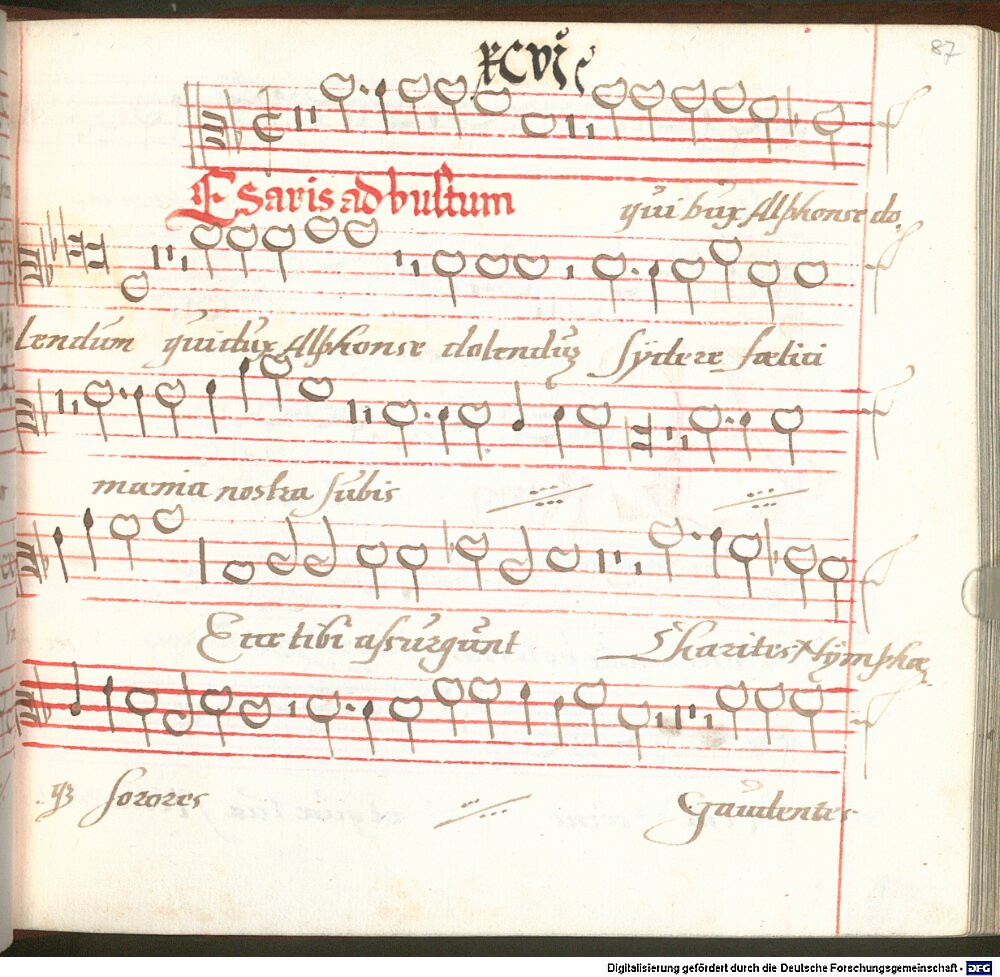 XCVI
87
ESaris ad bustum
qui dux Alphonse do
lendum qui dux Alphonse dolendũ sydere fœlici
mænia nostra subis
Ecce tibi assurgunt Charites Nymphæ
qz sorores
Gaudentes
Digitalisierung gefördert durch die Deutsche Forschungsgemeinschaft - DFG